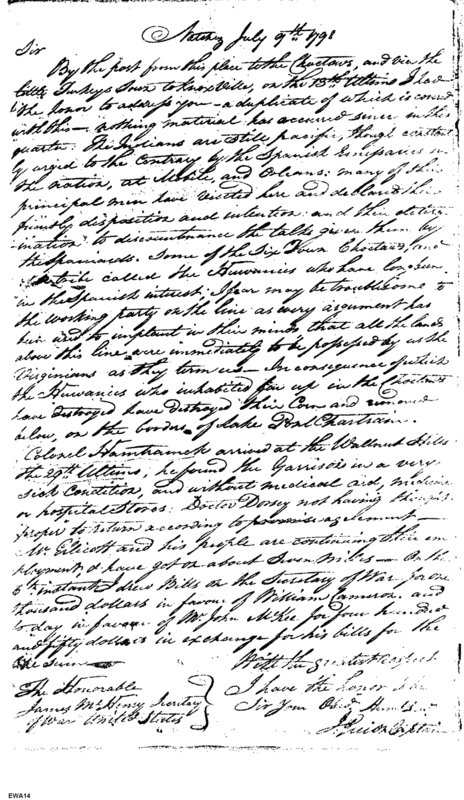 Natchez July 9th 1798
Sir
By the post from this place to the Choctaws, and via the
little Turkeys Town to Knoxville, on the 13th Ultimo I had
the honor to address you - a duplicate of which is covered
with this - nothing material has accured since in this
quarter. The Indians are still pacific, though constant
ly urged to the Contrary by the Spanish Emissaries in
the nation, at Mobile and Orleans: many of their
principal men have visited here and declared their
friendly disposition and intention: and their deter
mination to discountenance the talks given them by
the Spaniards. Some of the Six Town Choctaws, and
called the Huwanies who have long been
in the Spanish interest, I fear may be troublesome to
the working party on the line as every argument has
been used to implant in their minds that all the lands
above this line are immediately to be possessed by us the
Virginians as they term us - In consequence of which
the Huwanies who inhabited far up in the Choctaws
have destroyed have destroyed their Corn and removed
below, on the borders of Lake Pont Chartrain.
Colonel Hamtramck arrived at the Wallnut Hills
the 29th Ultimo, he found the Garrison in a very
sick Condition, and without medical aid, medicine
or hospital Stores: Doctor Dorsey not having thought
proper to return according to promise agreement -
Mr Ellicott and his people are continuing their em
ployment, & have got on about Seven miles - On the
6th instant I drew Bills on the Secretary of War for one
thousand dollars in favour of William Cameron. and
to day in favour of Mr John McKee for four hundred
and fifty dollars in exchange for his bills for the
With the greatest respect
I have the honor
Sir Your
Captain
The Honorable
James McHenry Secretary
of War United States
EWA14